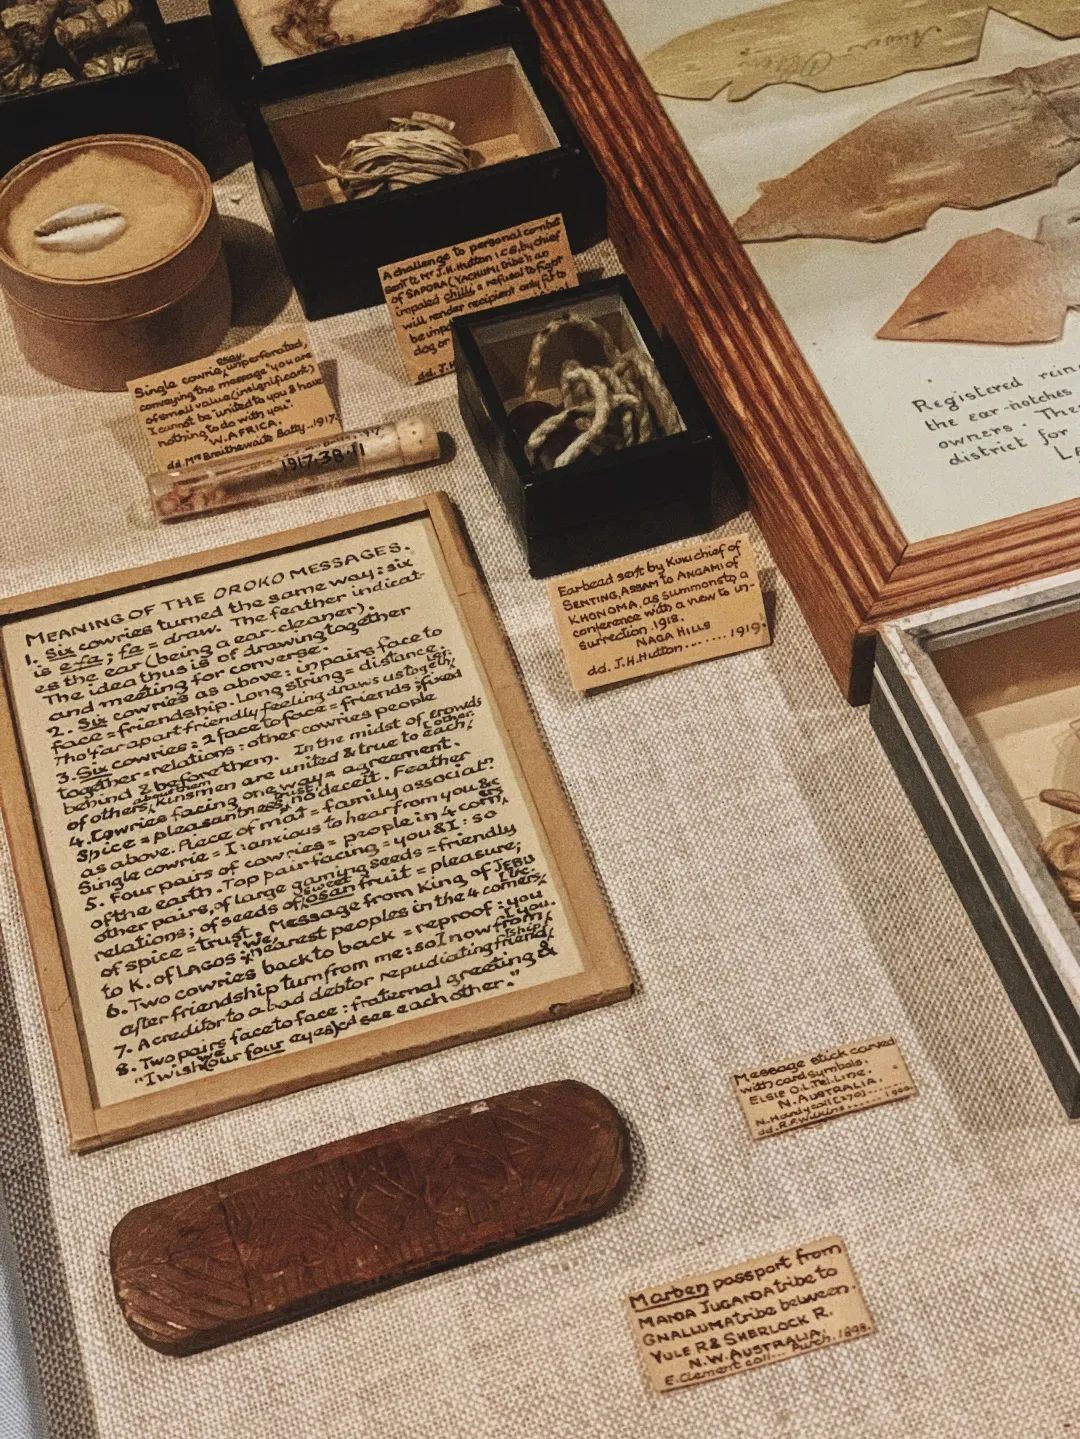 A challenge to personal combat
sent to Mr J.H. Hutton I.C.S, by chief
of SAPORA (YACHUMI tribe): an
impaled chilli = refusal to fight
will render recipient only fit to
be imp
dog or
dd. J.H
Single cowrie, gray, unperforated,
conveying the message "you are
of small value (insignificant)
I cannot be united to you & have
nothing to do with you".
W. AFRICA.
dd. Mrs Braithwaite Batty..1917.
1917.38.11
Earbead sent by KUKI chief of
SENTING, ASSAM to ANGAMI of
KHONOMA, as summons to a
conference with a view to in-
surrection. 1918.
NAGA HILLS
dd. J.H. Hutton..... 1919.
Registered rein
the ear-notches
owners. The
district for
LA
MEANING OF THE OROKO MESSAGES.
1. Six cowries turned the same way: six
is e-fa; fa = draw. The feather indicat-
es the ear (being a ear-cleaner).
The idea thus is of drawing together
and meeting for converse.
2. Six cowries as above: in pairs face to
face = friendship. Long string = distance.
Tho' far apart friendly feeling draws us togeth/er.
3. Six cowries: 2 face to face = friends: fixed
together = relations: other cowries people
behind & before them. In the midst of crowds
of others, kinsmen are united & true to each/other.
about them
4. Cowries facing one way = agreement.
Spice = pleasantness, trust, no deceit. Feather
as above. Piece of mat = family associatn
Single cowrie = I: anxious to hear from you &c
5. Four pairs of cowries = people in 4 corn/ers
of the earth. Top pair facing = you & I: so
other pairs, of large gaming seeds = friendly
relations; of seeds of sweet osan fruit = pleasure;
of spice = trust. Message from King of JEBU
to K. of LAGOS: we, nearest peoples in the 4 corners, &c.
6. Two cowries back to back = reproof: you
after friendship turn from me: so I now from/I you.
7. A creditor to a bad debtor repudiating friend/ship.
8. Two pairs face to face: fraternal greeting &
"I wish we (our four eyes) cd see each other."
Message stick carved
with card symbols.
ELSIE O.L. Tel. Line.
N. AUSTRALIA.
N. Hardy coll [270]
dd. R.F. Wilkins...... 1900.
Marben passport from
MANDA JUGANDA tribe to
GNALLUMA tribe between
YULE R & SHERLOCK R.
N.W. AUSTRALIA.
E. Clement coll... Purch. 1898.